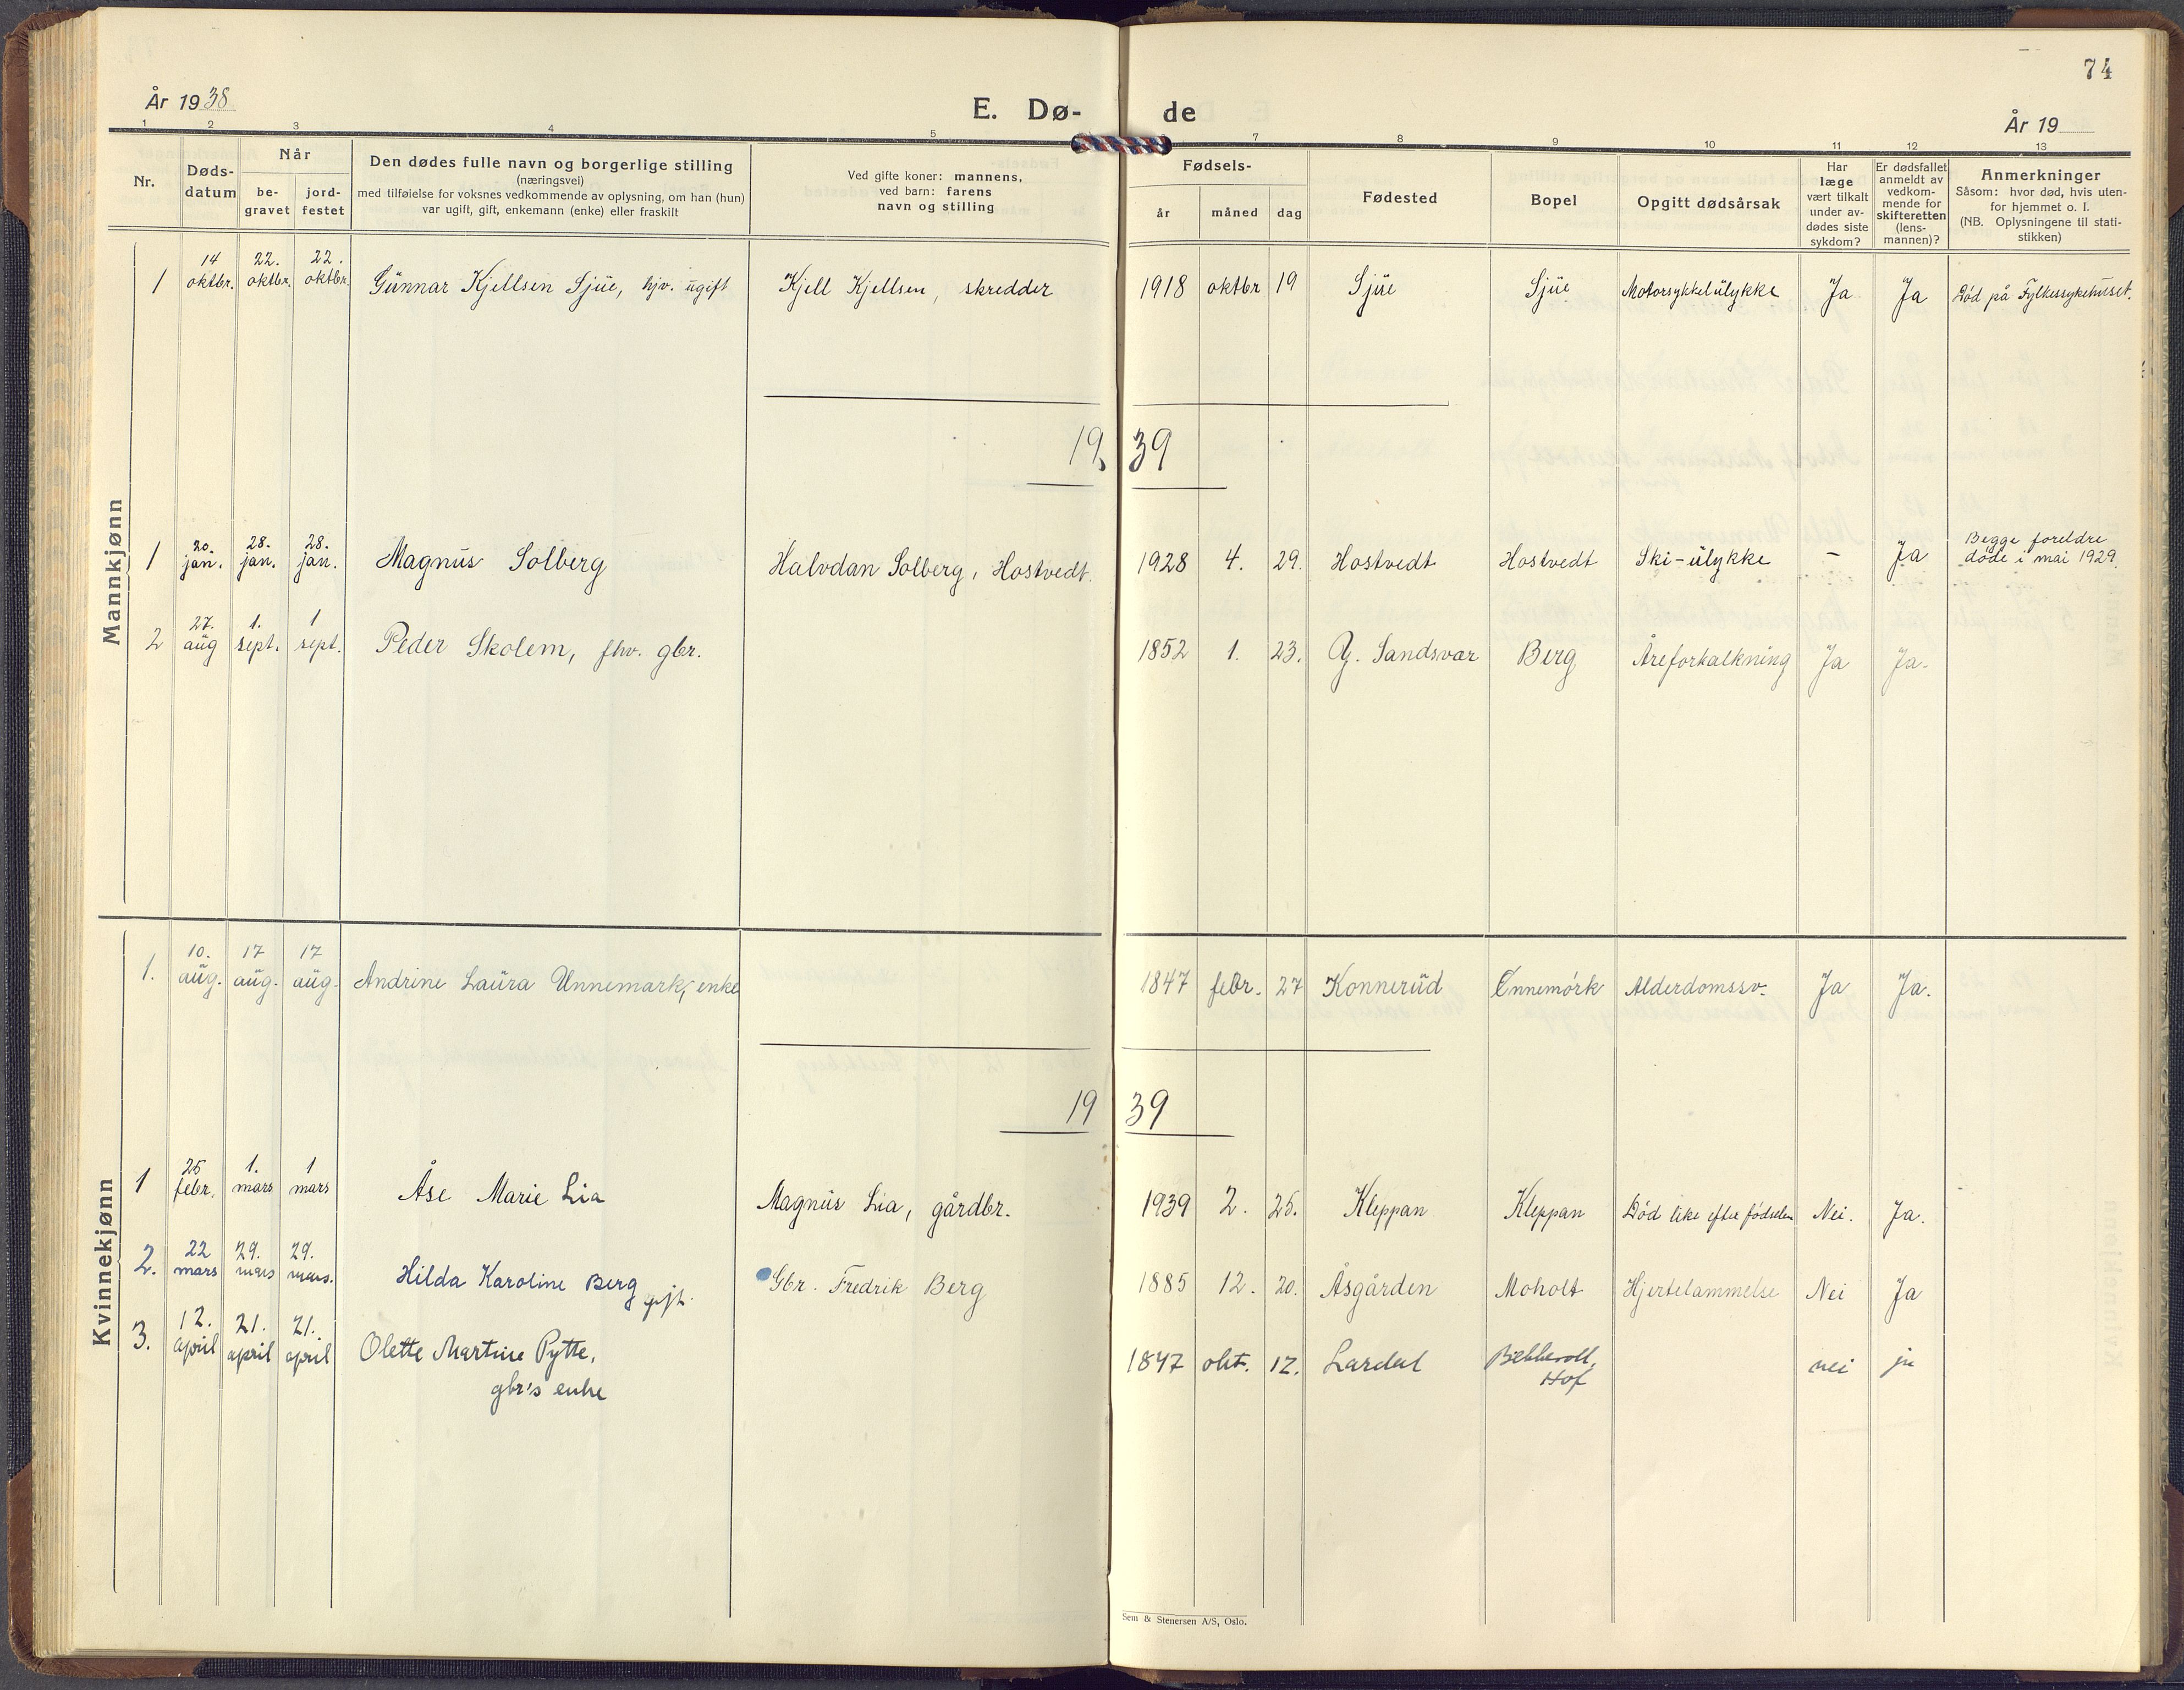 74
År 1938
E. Dø-
de
År 19
1 2 3 4 5 7 8 9 10 11 12 13
Nr.
Døds-
datum
Når
be-
gravet
jord-
festet
Den dødes fulle navn og borgerlige stilling
(næringsvei)
med tilføielse for voksnes vedkommende av oplysning, om han (hun)
var ugift, gift, enkemann (enke) eller fraskilt
Ved gifte koner: mannens,
ved barn: farens
navn og stilling
Fødsels-
år måned dag
Fødested
Bopel
Opgitt dødsårsak
Har
læge
vært tilkalt
under av-
dødes siste
sykdom?
Er dødsfallet
anmeldt av
vedkom-
mende for
skifteretten
(lens-
mannen)?
Anmerkninger
Såsom: hvor død, hvis uten-
for hjemmet o. l.
(NB. Oplysningene til stati-
stikken)
Mannkjønn
14 22. 22.
1 oktbr. oktbr. oktbr. Gunnar Kjellsen Sjue, hjv. ugift Kjell Kjellsen, skredder 1918 oktbr 19 Sjue Sjue Motorsykkelulykke Ja Ja Död på Fylkessykehuset.
19 39
20. 28. 28. Begge foreldre
1 jan. jan. jan. Magnus Solberg Halvdan Solberg, Hostvedt. 1928 4. 29. Hostvedt Hostvedt Ski-ulykke - Ja döde i mai 1929.
27. 1. 1
2 aug sept. sept. Peder Skolem, fhv. gbr. 1852 1. 23. Y. Sandsvær Berg Åreforkalkning Ja Ja.
Kvinnekjønn
10. 17 17
1. aug. aug. aug. Andrine Laura Unnemark, enke 1847 febr. 27 Konnerud Önnemörk Alderdomssv. Ja Ja.
19 39
25 1. 1
1 febr. mars mars Åse Marie Lia Magnus Lia, gårdbr. 1939 2. 25. Kleppan Kleppan Död like efter födselen Nei. Ja.
22 29. 29.
2. mars mars mars. Hilda Karoline Berg gift. Gbr. Fredrik Berg 1885 12. 20. Åsgården Moholt Hjertelammelse Nei Ja
12. 21. 21.
3. april april april Olette Martine Pytte, 1847 okt. 12. Lardal nei ja
gbr's enke Hof
Sem & Stenersen A/S, Oslo.